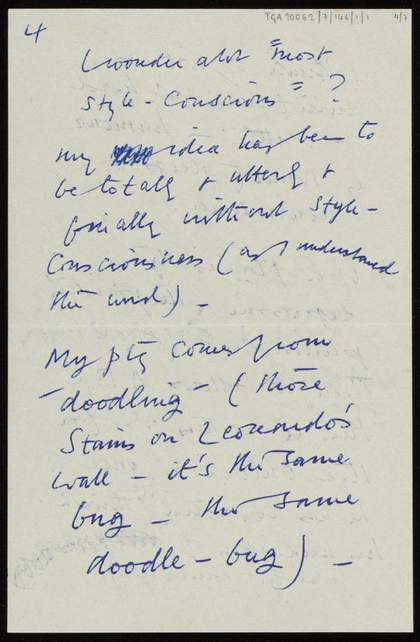 TGA 20062/7/146/1/1 4/7
4
I wonder abt "most
style-conscious"?
my idea has been to
be totally & utterly &
finally without style-
consciousness (as I understand
the word) –
My ptg comes from
– doodling – (those
Stains on Leonardo's
wall – it's the same
bug – the same
doodle-bug) –